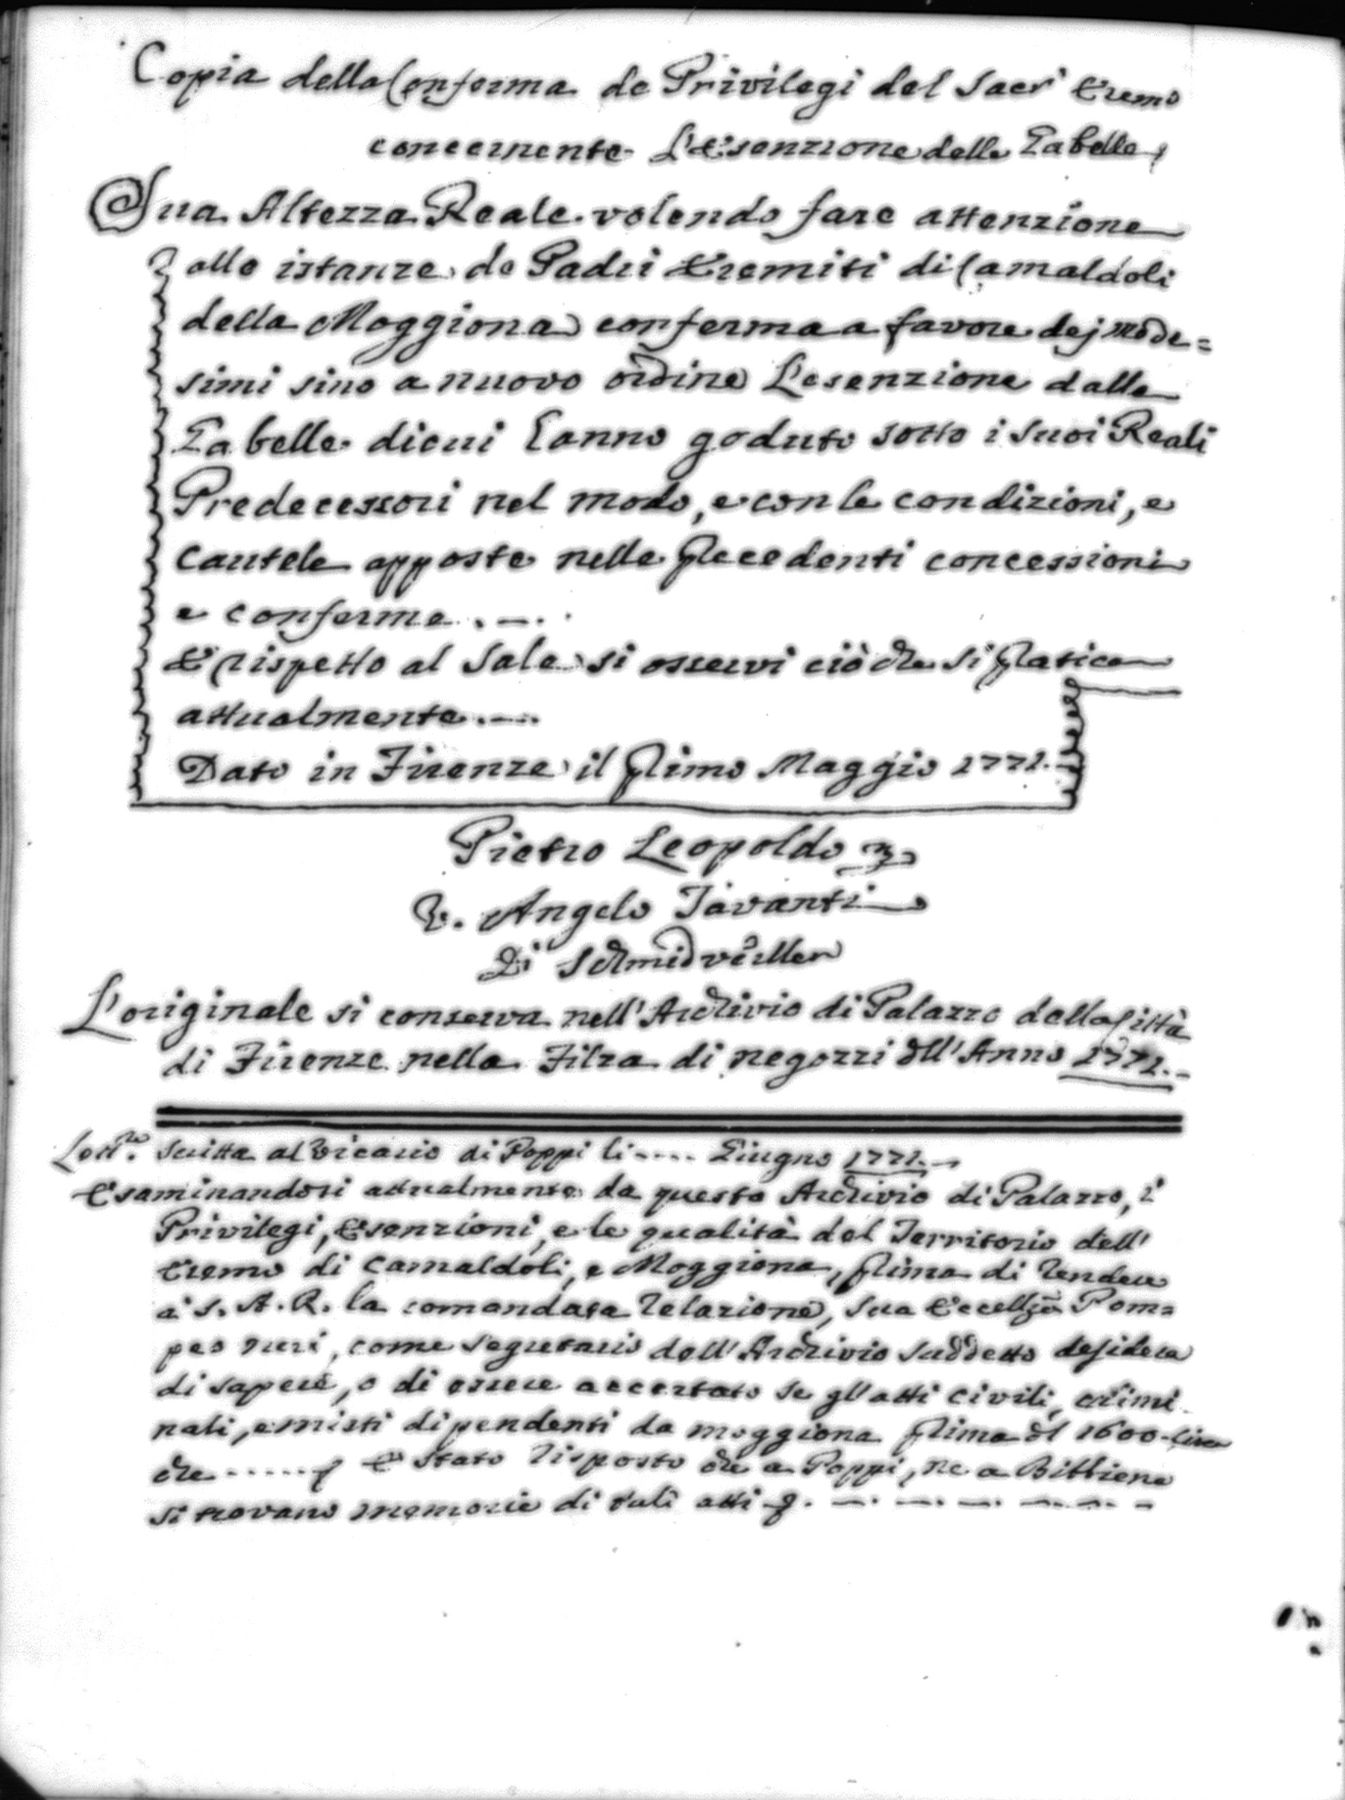 Copia della Conferma de Privilegi del Sacr Eremo
concernente L'Esenzione delle Gabelle
Sua Altezza Reale volendo fare attenzione
alle istanze de Padri Eremiti di Camaldoli
della Moggiona conferma a favore dej mede=
simi sino a nuovo ordine L'esenzione dalle
Gabelle di cui hanno goduto sotto i suoi Reali
Predecessori nel modo, e con le condizioni, e
Cautele apposte nelle precedenti concessioni
e conferme . — .
E rispetto al Sale si osservi ciò che si pratica
attualmente . — .
Dato in Firenze il primo Maggio 1771. —
Pietro Leopoldo
V. Angelo Tavanti
Di Schmidveiller
L'originale si conserva nell'Archivio di Palazzo della Città
di Firenze nella Filza di negozzi dll'Anno 1771. -
scritta al Vicario di Poppi li ---- Giugno 1771. —
Esaminandosi attualmente da questo Archivio di Palazzo, i
Privilegi, Esenzioni, e le qualità del Territorio dell'
Eremo di Camaldoli, e Moggiona, prima di rendere
a S. A. R. la comandata relazione, Sua Eccellza Pom=
peo Neri, come Segretario dell'Archivio Suddetto desidera
di sapere, o di essere accertato se gl'atti civili, crimi
nali, e misti dipendenti da moggiona prima dl 1600 circa
che ------ È Stato risposto che a Poppi, ne a Bibbiena
si trovano memorie di tali atti